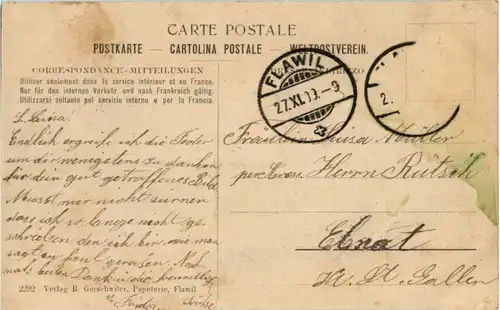 CARTE POSTALE
POSTKARTE — CARTOLINA POSTALE — WELTPOSTVEREIN.
CORRESPONDANCE - MITTEILUNGEN
Utiliser seulement dans le service intérieur et en France.
Nur für den internen Verkehr und nach Frankreich gültig.
Utilizzarsi soltanto pel servizio interno e per la Francia.
FLAWIL
27.XI.
2.
L. Luisa!
Endlich ergreife ich die Feder
um dir wenigstens zu danken
für dein gut getroffenes Bild
Musst mir nicht zürnen
dass ich so lange nicht ge-
schrieben den ich bin, wie man
sagt zu faul gewesen. Noch-
mals besten Dank
Fräulein Luisa Müller
Herrn Rütsch
Ebnat
Kt. St. Gallen
2292 Verlag B. Gerschwiler, Papeterie, Flawil